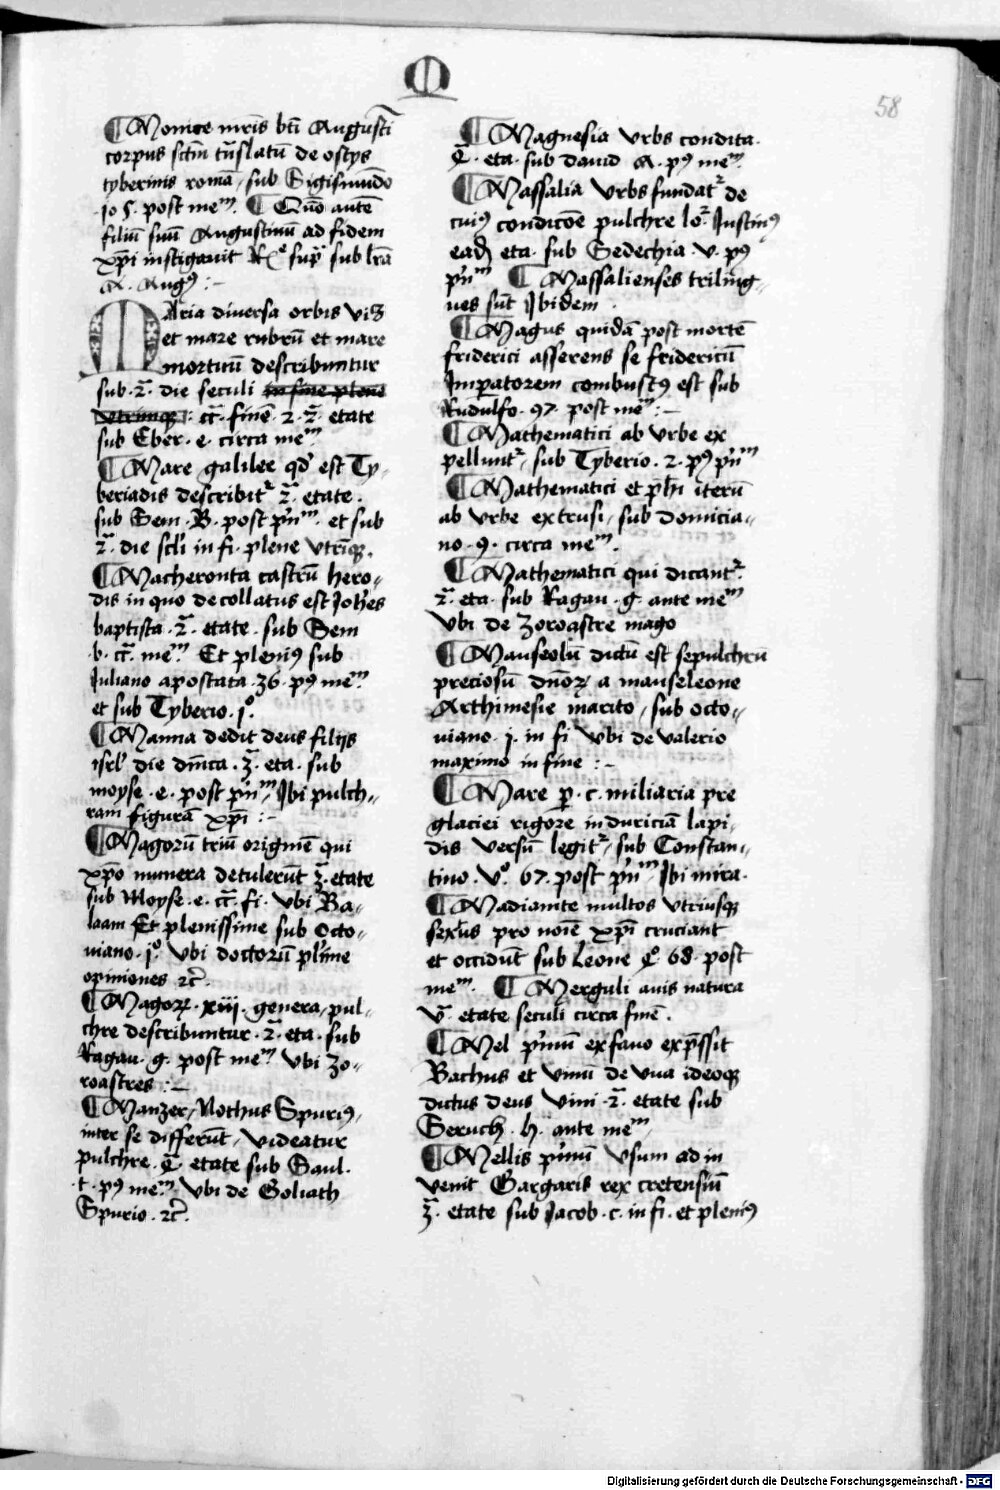 M
58
¶ Monice mr̄is bt̄i Augusti
corpus sctm̄ tn̄slatū de ostys
tyberinis romā / sub Sigismūdo
.10 5. post meᵐ. ¶ Qūo autē
filiū suū Augustinū ad fidem
xp̄i instigauit Rº supͣ sub lr̄a
A. Augꝰ :-
MAria diuersa orbis viꝫ
et mare rubrū et mare
mortuū describuntur
sub .2ͣ. die seculi in fine plene
utriusqꝫ : cͣ. finē .2. 2ͣ. etate
sub Eber .e. circa meᵐ
¶ Mare galilee qd̄ est Ty-
beriadis describitʳ 2ͣ. etate.
sub Sem .B. post pn̄ᵐ. et sub
2ͣ. die scl̄i in fi. plene vtriqꝫ.
¶ Macheronta castrū hero-
dis in quo decollatus est Joh̄es
baptista .2ͣ. etate. sub Sem
.b. cͣ. meᵐ. Et pleniꝰ sub
Juliano apostata .36. pꝰ meᵐ.
et sub Tyberio .1º.
¶ Manna dedit deus filijs
isrl̄ die dn̄ica .3ͣ. eta. sub
moyse .e. post pn̄ᵐ / Jbi pulch-
ram figurā xp̄i :-
¶ Magorū triū originē qui
xp̄o munera detulerūt 3ͣ. etate
sub Moyse .e. cͣ. fi. vbi Ba-
laam Et plenissime sub Octo-
uiano .1º. Vbi doctorū plīme
opiniones ⁊c̄.
¶ Magoꝝ .xiii. genera / pul-
chre describuntur .2ͣ. eta. sub
Ragau .g. post meᵐ vbi Zo-
roastres :-
¶ Manzer / Nothus Spuriꝰ,
inter se differūt / videatur
pulchre .4ͣ. etate sub Saul.
.t. pꝰ meᵐ. Vbi de Goliath
Spurio .⁊c̄.
¶ Magnesia vrbs condita.
4ͣ. eta. sub dauid A. pꝰ meᵐ.
¶ Massalia vrbs fundatʳ de
cuiꝰ condicōe pulchre loʳ. Justinꝰ
ead̄ eta. sub Sedechia .v. pꝰ
pn̄ᵐ ¶ Massalienses triling-
ues sūt Jbidem .
¶ Magus quidā post mortē
friderici asserens se fridericū
Jmperatorem combustꝰ est sub
Rudulfo .97. post meᵐ :-
¶ Mathematici ab vrbe ex
pelluntʳ / sub Tyberio .2. pꝰ pn̄ᵐ
¶ Mathematici et ph̄i iterū
ab vrbe extrusi / sub domicia-
no .9. circa meᵐ.
¶ Mathematici qui dicantʳ.
2ͣ. eta. sub Ragau .g. ante meᵐ
Vbi de Zoroastre mago
¶ Mauseolū dictū est sepulchrū
preciosū dn̄oꝝ a mauseleone
Arthimesie marito / sub octo-
uiano .1. in fi vbi de Valerio
maximo in fine :-
¶ Mare p̱ .c. miliaria pre
glaciei rigore in duriciā lapi-
dis versū legitʳ / sub Constan-
tino .vº. 67. post pn̄ᵐ / Jbi mira.
¶ Madianite multos vtriusqꝫ
sexus pro noīe xp̄i cruciant
et occidūt sub Leone 4º 68. post
meᵐ. ¶ Merguli auis natura
vͣ. etate seculi circa finē.
¶ Mel pͥmū ex fauo exp̄ssit
Bachus et vinū de vua ideoqꝫ
dictus deus vini .2ͣ. etate sub
Seruch .h. ante meᵐ
¶ Mellis pͥmū vsum ad in
uenit Gargaris rex cretensiū
3ͣ. etate sub Jacob .c. in fi. et pleniꝰ
Digitalisierung gefördert durch die Deutsche Forschungsgemeinschaft - DFG